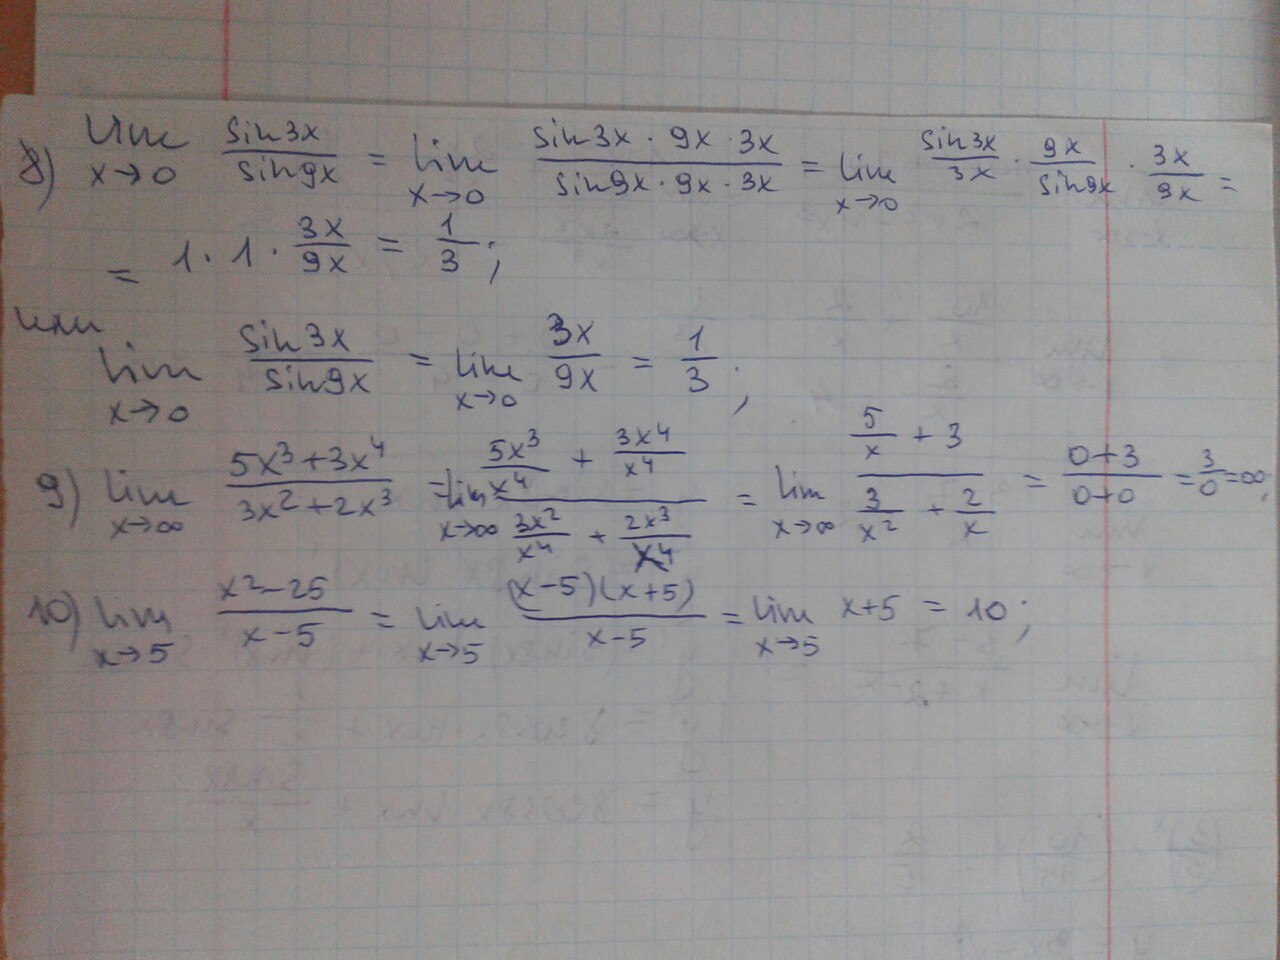 8) lim x→0 sin3x/sin9x = lim x→0 (sin3x · 9x · 3x)/(sin9x · 9x · 3x) = lim x→0 sin3x/3x · 9x/sin9x · 3x/9x =
= 1 · 1 · 3x/9x = 1/3;
или
lim x→0 sin3x/sin9x = lim x→0 3x/9x = 1/3;
9) lim x→∞ (5x³+3x⁴)/(3x²+2x³) = lim x→∞ (5x³/x⁴ + 3x⁴/x⁴)/(3x²/x⁴ + 2x³/x⁴) = lim x→∞ (5/x + 3)/(3/x² + 2/x) = (0+3)/(0+0) = 3/0 = ∞;
10) lim x→5 (x²-25)/(x-5) = lim x→5 ((x-5)(x+5))/(x-5) = lim x→5 x+5 = 10;